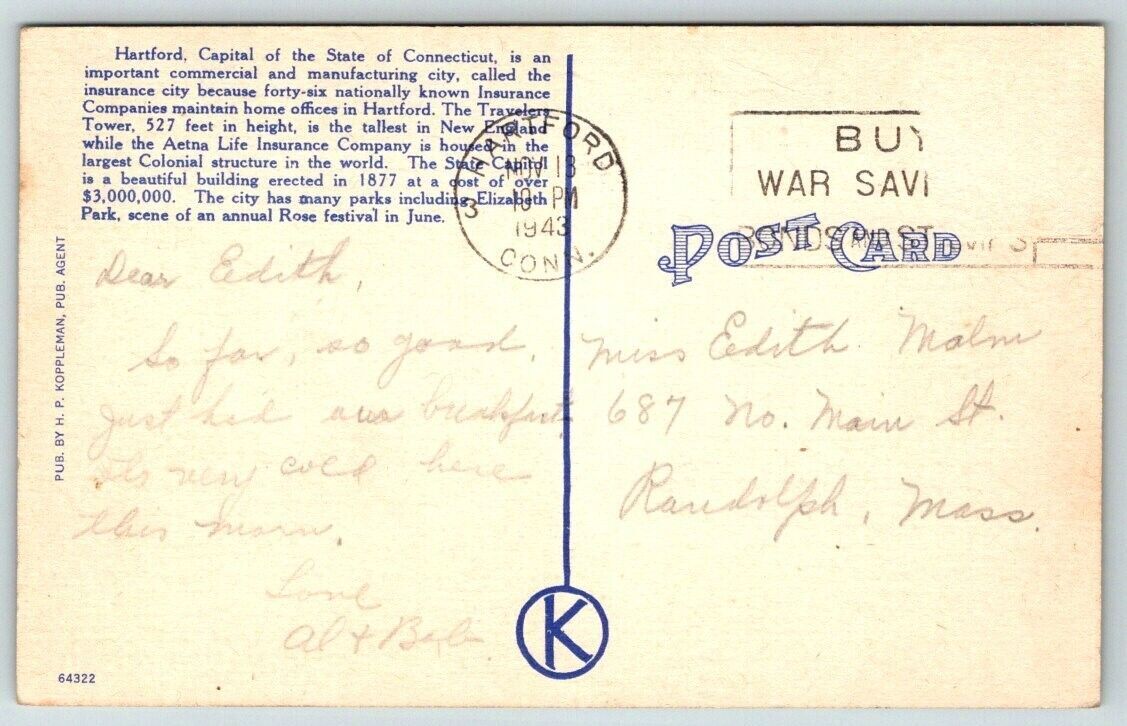 Hartford, Capital of the State of Connecticut, is an
important commercial and manufacturing city, called the
insurance city because forty-six nationally known Insurance
Companies maintain home offices in Hartford. The Travelers
Tower, 527 feet in height, is the tallest in New England
while the Aetna Life Insurance Company is housed in the
largest Colonial structure in the world. The State Capitol
is a beautiful building erected in 1877 at a cost of over
$3,000,000. The city has many parks including Elizabeth
Park, scene of an annual Rose festival in June.
PUB. BY H. P. KOPPLEMAN, PUB. AGENT
Dear Edith,
So far, so good.
Just had our breakfast
Its very cold here
this morn.
Love
Al + Bab
64322
K
HARTFORD
3
NOV 13
10 PM
1943
CONN.
BUY
WAR SAVI
BONDS AND ST MPS
POST CARD
Miss Edith Malm
687 No. Main St.
Randolph, Mass.